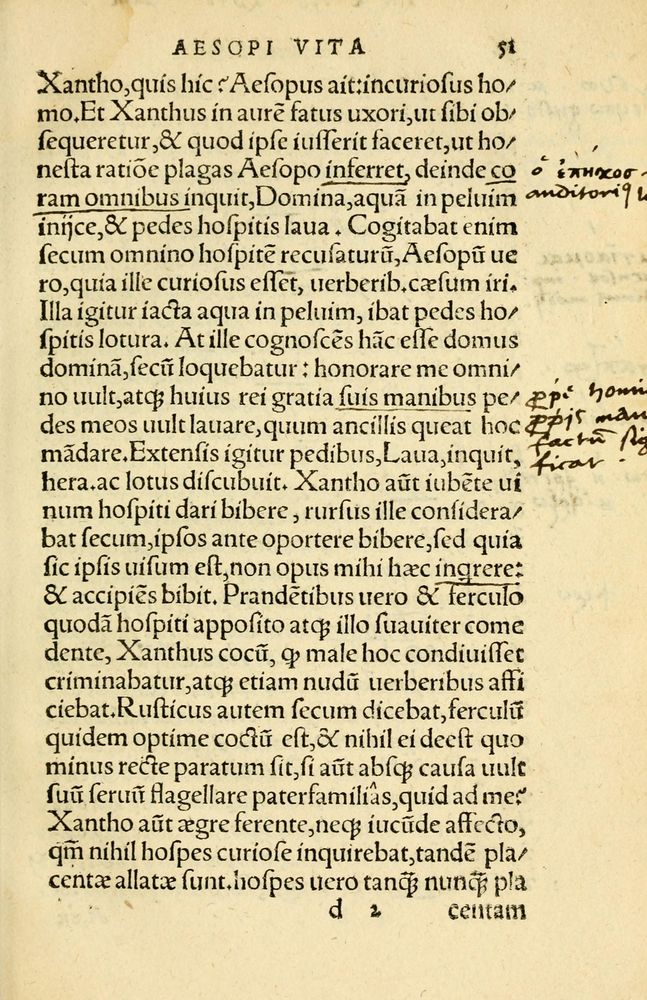 AESOPI VITA 51
Xantho,quis hic? Aeſopus ait:incurioſus ho/
mo.Et Xanthus in aurē fatus uxori,ut ſibi ob/
ſequeretur,& quod ipſe iuſſerit faceret,ut ho/
neſta ratiōe plagas Aeſopo inferret, deinde co
ram omnibus inquit,Domina,aquā in peluim
inijce,& pedes hoſpitis laua . Cogitabat enim
ſecum omnino hoſpitē recuſaturū,Aeſopū ue
ro,quia ille curioſus eſſet, uerberib.cæſum iri.
Illa igitur iacta aqua in peluim, ibat pedes ho/
ſpitis lotura. At ille cognoſcēs hāc eſſe domus
dominā,ſecū loquebatur : honorare me omni/
no uult,atqꝫ huius rei gratia ſuis manibus pe/
des meos uult lauare, quum ancillis queat hoc
mādare.Extenſis igitur pedibus,Laua,inquit,
hera.ac lotus diſcubuit. Xantho aūt iubēte ui
num hoſpiti dari bibere , rurſus ille conſidera/
bat ſecum,ipſos ante oportere bibere,ſed quia
ſic ipſis uiſum eſt,non opus mihi hæc inqrere:
& accipiēs bibit. Prandētibus uero & ferculo
quodā hoſpiti appoſito atqꝫ illo ſuauiter come
dente, Xanthus cocū, ꝙ male hoc condiuiſſet
criminabatur,atqꝫ etiam nudū uerberibus affi
ciebat.Ruſticus autem ſecum dicebat,ferculū
quidem optime coctū eſt,& nihil ei deeſt quo
minus recte paratum ſit,ſi aūt abſqꝫ cauſa uult
ſuū ſeruū flagellare paterfamiliâs,quid ad me?
Xantho aūt ægre ferente,neqꝫ iucūde affecto,
qm̄ nihil hoſpes curioſe inquirebat,tandē pla/
centæ allatæ ſunt.hoſpes uero tanqꝫ̄ nunqꝫ̄ pla
d 2 centam
ὁ ἐπηκοοσ
auditoriꝗ
ꝓpē homi
ꝓpijs man
factū ſig
ficat .